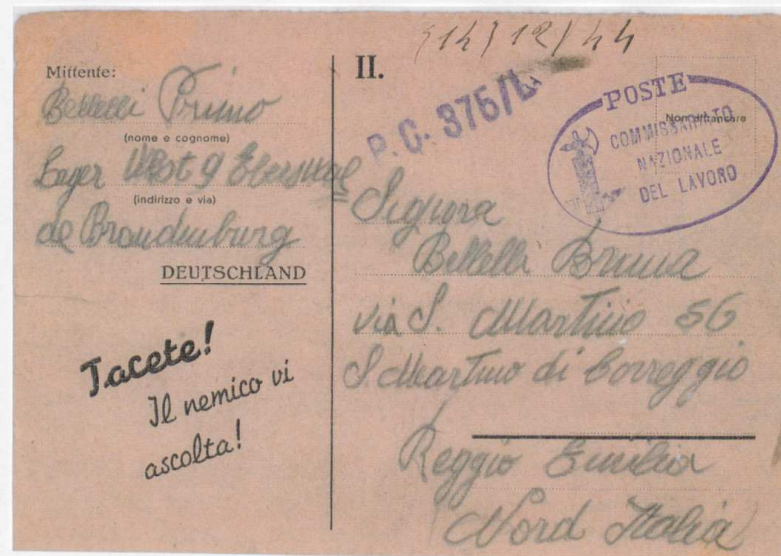 14/12/44
Mittente:
Bellelli Primo
(nome e cognome)
Lager West 9 Eberswal
(indirizzo e via)
de Brandenburg
DEUTSCHLAND
Tacete!
Il nemico vi
ascolta!
II.
P.C. 376/L.
POSTE
COMMISSARIATO
NAZIONALE
DEL LAVORO
Non affrancare
Signora
Bellelli Bruna
via S. Martino 56
S. Martino di Correggio
Reggio Emilia
Nord Italia